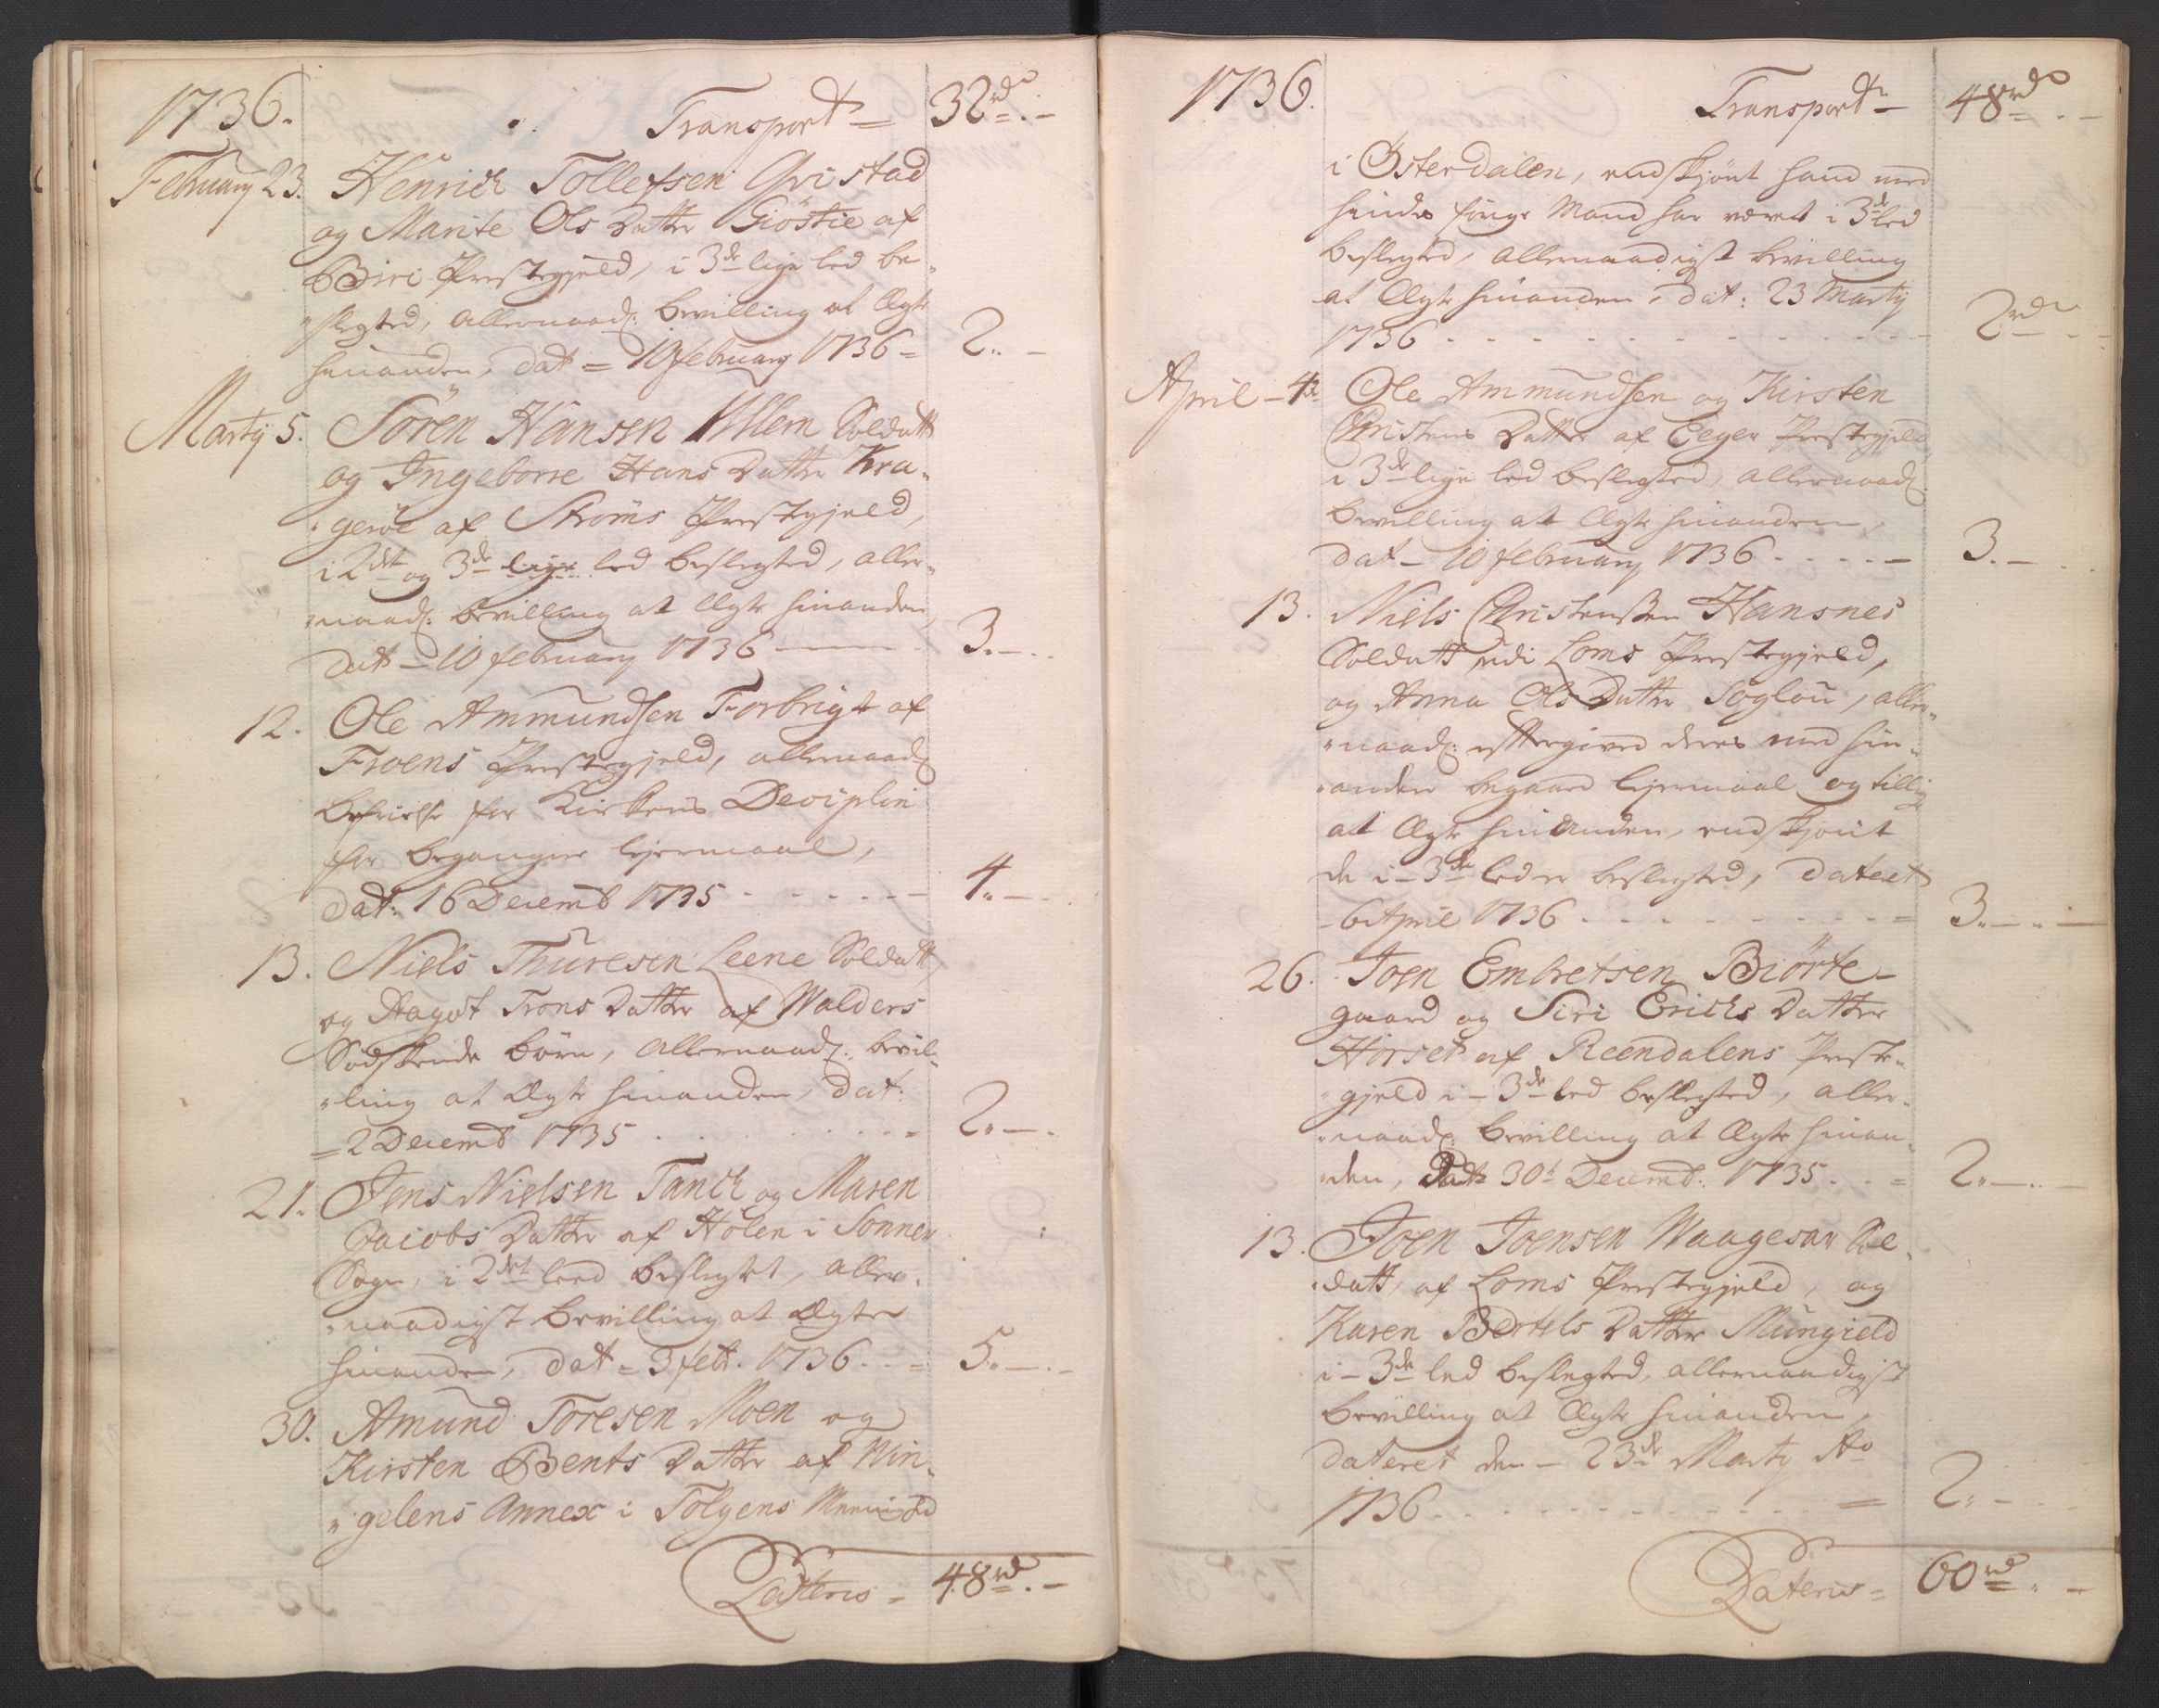 1736.
Transport = 32 rd. -
February 23. Henrich Tollefsen Qvistad
og Marite Ols Datter Giöstie af
Biri Prestegjeld, i 3de lige led be„
„slegted, allernaad: bevilling at Ægte
hinanden, dat = 10 february 1736 = 2.. -
Marty 5. Sören Hansen Ullern Soldatt
og Ingeborre Hans Datter Kra„
„geröe af Ströms Prestegjeld,
i 2det og 3de lige led beslegted, aller„
„naad: bevilling at Ægte hinanden,
dat - 10 february 1736 - 3. -
12. Ole Ammundsen Forbrigt af
Froens Prestegjeld, allernaad:
befrielse for Kirkens Deciplin
for begangne lejermaal,
dat: 16 Decemb 1735 - - - - - 4.. -
13. Niels Thuresen Leene Soldatt,
og Aagot Trons Datter af Walders
Sødskende börn, allernaad: bevil„
„ling at Ægte hinanden, dat:
= 2 Decemb 1735 . . . . 2.. -
21. Jens Nielsen Tanch og Maren
Jacobs Datter af Hölen i Sonner
Sogn, i 2det leed beslegtet, aller„
„naadigst bevilling at Ægte
hinanden, dat = 3 febr. 1736 . . = 5.. -
30. Amund Toresen Moen og
Kirsten Bents Datter af Win„
„gelens Annex i Tolgens
Lateris = 48 rd. -
1736.
Transport - 48 rd . -
i Österdalen, endskjönt hand med
hindes forige Mand har været i 3de led
beslegted, allernaadigst bevilling
at Ægte hinanden, dat: 23 Marty
1736 - - - - - 2 rd - -
April - 4de Ole Ammundsen og Kirsten
Christens Datter af Eeger Prestegjeld
i 3de lige led beslegted, allernaad:
bevilling at Ægte hinanden,
dat - 10 february 1736 - - - - - 3. -
13. Niels Christenssen Hansnes
Soldatt udi Loms Prestegjeld,
og Anna Ols Datter Söglou, aller„
„naad: eftergived deres med hin„
„anden begaaed lejermaal og tillige
at Ægte hinanden, endskjönt
de i - 3de led er beslegted, dateret
- 6 April 1736 - - - - - = 3.. - . -
26. Joen Embretsen Biörte-
gaard og Siri Erichs Datter
Horset af Reendalens Preste„
„gjeld i - 3de led beslegted, aller„
„naad: bevilling at Ægte hinan„
„den, dat 30t Decemb: 1735 . . = 2.. -.. -
13. Joen Joensen Waagesar Sol„
„datt, af Loms Prestegjeld, og
Karen Bertels Datter Mungield
i - 3de led beslegted, allernaadigst
bevilling at Ægte hinanden,
dateret den - 23de Marty Ao
1736 - - - - - = 2.. -
Lateris = 60 rd . -